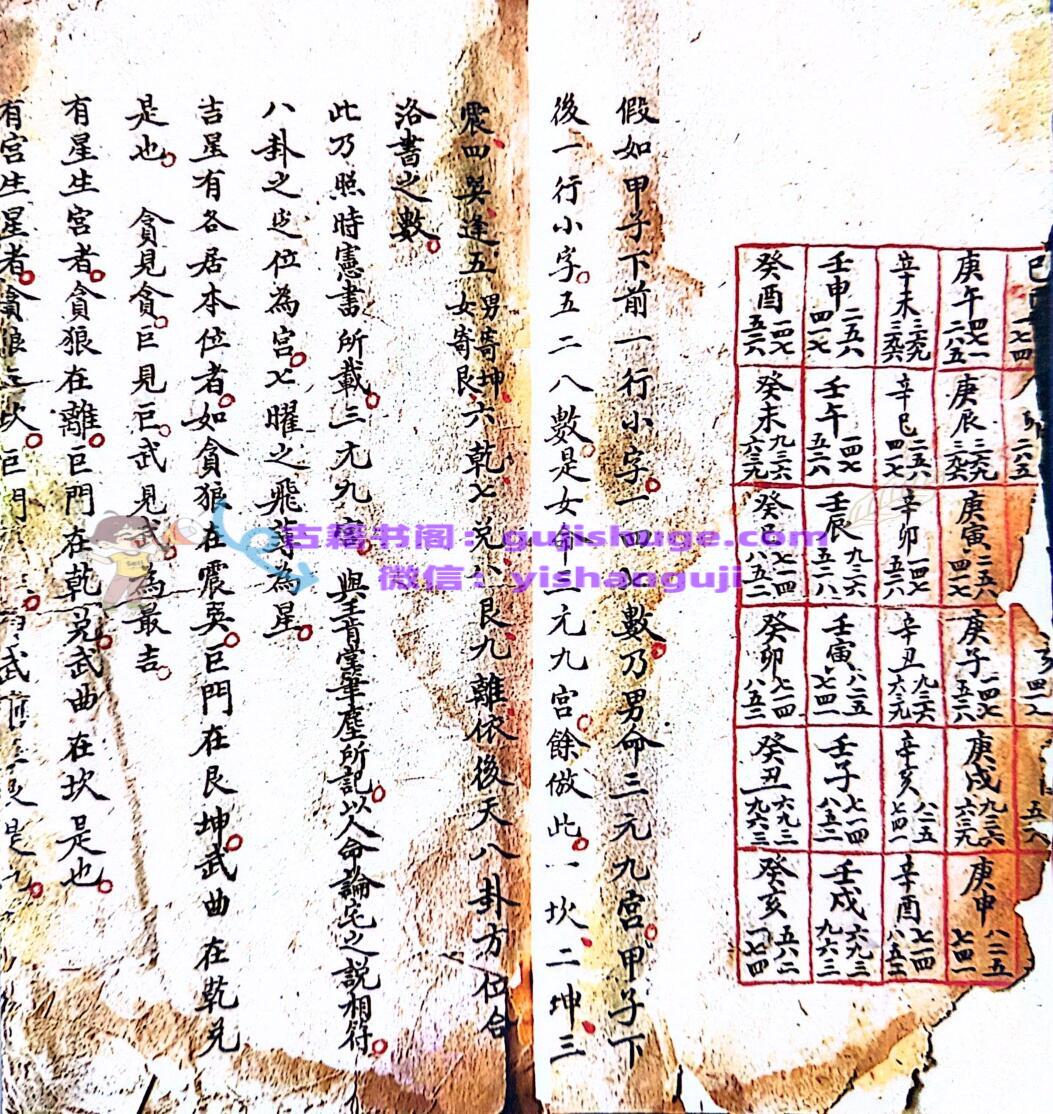 庚午 四七一 二八五
庚辰 三六九 三九六
庚寅 二五八 四一七
庚子 一四七 五二八
庚戌 九三六 六三九
庚申 八二五 七四一
辛未 三六九 三九六
辛巳 二五八 四一七
辛卯 一四七 五二八
辛丑 九三六 六三九
辛亥 八二五 七四一
辛酉 七一四 八五二
壬申 二五八 四一七
壬午 一四七 五二八
壬辰 九三六 五二八
壬寅 八二五 七四一
壬子 七一四 八五二
壬戌 六九三 九六三
癸酉 一四七 五二八
癸未 九三六 六三九
癸巳 八五二
癸卯 七一四 八五二
癸丑 六九三 九六三
癸亥 五八二 一七四
假如甲子下前一行小字一四七數乃男命三元九宮甲子下
後一行小字五二八數是女命三元九宮餘倣此一坎二坤三
震四巽逢五男寄坤女寄艮六乾七兌八艮九離依後天八卦方位合
洛書之數
此乃照時憲書所載三元九宮與王肯堂筆塵所記以人命論宅之說相符
八卦之定位為宮七曜之飛躔為星
吉星有各居本位者如貪狼在震巽巨門在艮坤武曲在乾兌
是也 貪見貪巨見巨武見武為最吉
有星生宮者貪狼在離巨門在乾兌武曲在坎是也
有宮生星者貪狼在坎巨門
古籍书阁：gujishuge.com
微信：yishanguji